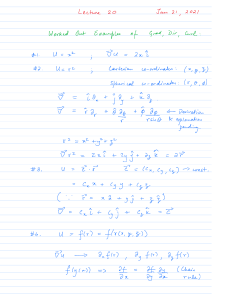 Lecture 20 Jan 21, 2021
Worked Out Examples of Grad, Div, Curl.
#1. U = x² , ∇U = 2x î
#2. U = r² , Cartesian co-ordinates (x, y, z)
Spherical co-ordinates (r, θ, φ)
∇ = î ∂x + ĵ ∂y + k̂ ∂z
∇ = r̂ ∂r + θ̂ ∂θ/r + φ̂ ∂φ/(r sinθ) ← Derivation & explanation pending.
r² = x² + y² + z²
∇r² = 2x î + 2y ĵ + 2z k̂ = 2r
#3. U = c · r c = (cx, cy, cz) → const.
= cx x + cy y + cz z
(∵ r = x î + y ĵ + z k̂)
∇U = cx î + cy ĵ + cz k̂ = c
#4. U = f(r) = f(r(x, y, z))
∇U → ∂x f(r), ∂y f(r), ∂z f(r)
f(y(x)) => ∂f/∂x = ∂f/∂y ∂y/∂x (Chain rule)